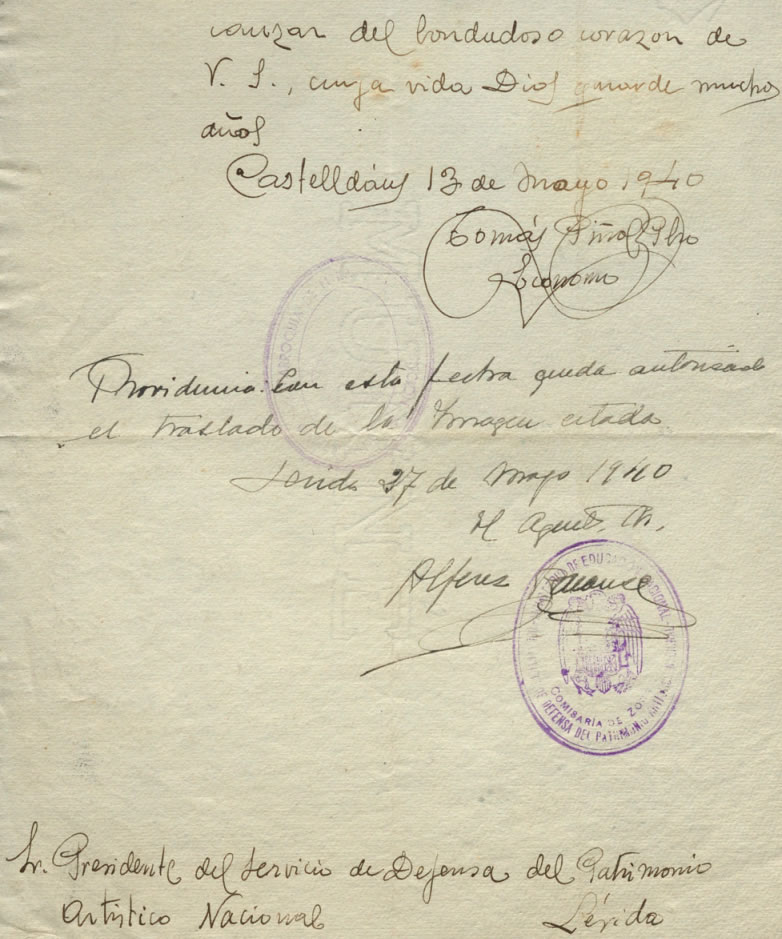 canzar del bondadoso corazon de
V. S., cuya vida Dios guarde muchos
años
Castelldáns 13 de Mayo 1940
Tomás Piñol Pbro
Ecónomo
Providencia: Con esta fecha queda autorizado
el traslado de la Imagen citada
Lerida 27 de Mayo 1940
El Agente
Alferez
DE EDUCACION NACIONAL
COMISARÍA DE ZONA
DE DEFENSA DEL PATRIMONIO
Sr. Presidente del Servicio de Defensa del Patrimonio
Artístico Nacional Lérida